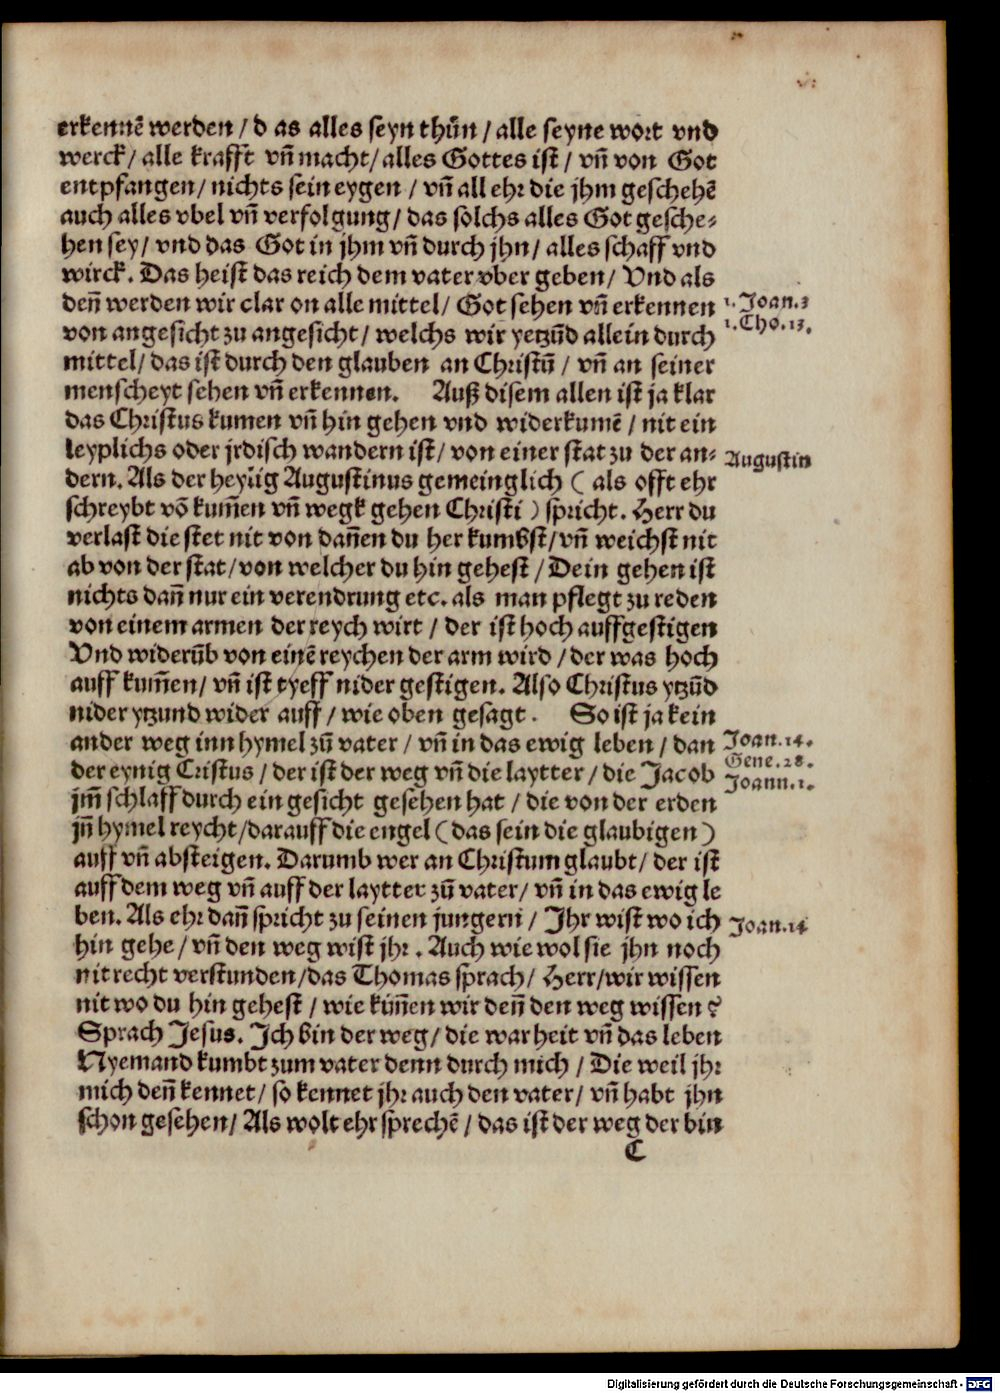 erkennē werden / d as alles seyn thůn / alle seyne wort vnd
werck / alle krafft vn̄ macht / alles Gottes ist / vn̄ von Got
entpfangen / nichts sein eygen / vn̄ all ehr die jhm geschehē
auch alles vbel vn̄ verfolgung / das solchs alles Got gesche⸗
hen sey / vnd das Got in jhm vn̄ durch jhn / alles schaff vnd
wirck. Das heist das reich dem vater vber geben / Vnd als
den̄ werden wir clar on alle mittel / Got sehen vn̄ erkennen
1. Joan. 3
von angesicht zu angesicht / welchs wir yetzūd allein durch
1. Cho. 13.
mittel / das ist durch den glauben an Christū / vn̄ an seiner
menscheyt sehen vn̄ erkennen. Auß disem allen ist ja klar
das Christus kumen vn̄ hin gehen vnd widerkumē / nit ein
leyplichs oder jrdisch wandern ist / von einer stat zu der an⸗
Augustin
dern. Als der heylig Augustinus gemeinglich ( als offt ehr
schreybt vō kum̄en vn̄ wegk gehen Christi ) spricht. Herr du
verlast die stet nit von dan̄en du her kumbst / vn̄ weichst nit
ab von der stat / von welcher du hin gehest / Dein gehen ist
nichts dan̄ nur ein verendrung etc. als man pflegt zu reden
von einem armen der reych wirt / der ist hoch auffgestigen
Vnd widerūb von einē reychen der arm wird / der was hoch
auff kum̄en / vn̄ ist tyeff nider gestigen. Also Christus ytzūd
nider ytzund wider auff / wie oben gesagt. So ist ja kein
ander weg inn hymel zů vater / vn̄ in das ewig leben / dan
Joan. 14.
der eynig Cristus / der ist der weg vn̄ die laytter / die Jacob
Gene. 28.
Joann. 1.
jm̄ schlaff durch ein gesicht gesehen hat / die von der erden
jn̄ hymel reycht / darauff die engel ( das sein die glaubigen )
auff vn̄ absteigen. Darumb wer an Christum glaubt / der ist
auff dem weg vn̄ auff der laytter zů vater / vn̄ in das ewig le
ben. Als ehr dan̄ spricht zu seinen jungern / Jhr wist wo ich
Joan. 14
hin gehe / vn̄ den weg wist jhr. Auch wie wol sie jhn noch
nit recht verstunden / das Thomas sprach / Herr / wir wissen
nit wo du hin gehest / wie kün̄en wir den̄ den weg wissen?
Sprach Jesus. Jch bin der weg / die warheit vn̄ das leben
Nyemand kumbt zum vater denn durch mich / Die weil jhr
mich den̄ kennet / so kennet jhr auch den vater / vn̄ habt jhn
schon gesehen / Als wolt ehr sprechē / das ist der weg der bin
C
Digitalisierung gefördert durch die Deutsche Forschungsgemeinschaft - DFG